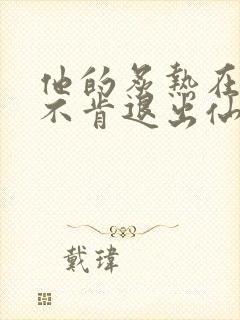 他的炙熱在
不肯退出仙
戴瑋